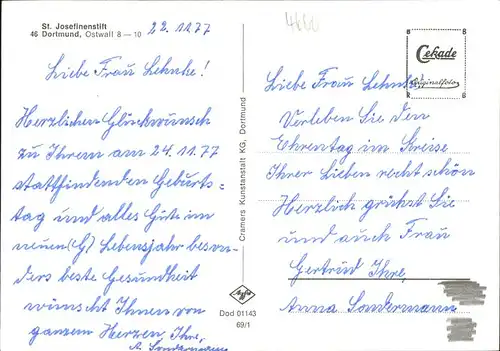 St. Josefinenstift
46 Dortmund, Ostwall 8 — 10
22.11.77
Liebe Frau Lehnke!
Herzlichen Glückwunsch
zu Ihrem am 24.11.77
stattfindenden Geburts-
tag und alles Gute im
neuen (G) Lebensjahr beson-
ders beste Gesundheit
wünscht Ihnen von
ganzem Herzen Ihre,
A. Sondermann
Cramers Kunstanstalt KG, Dortmund
Agfa
Dod 01143
69/1
Cekade
Originalfoto
Liebe Frau Lehnke,
Verleben Sie den
Ehrentag im Kreise
Ihrer Lieben recht schön
Herzlich grüßst Sie
und auch Frau
Gertrud Ihre,
Anna Sondermann